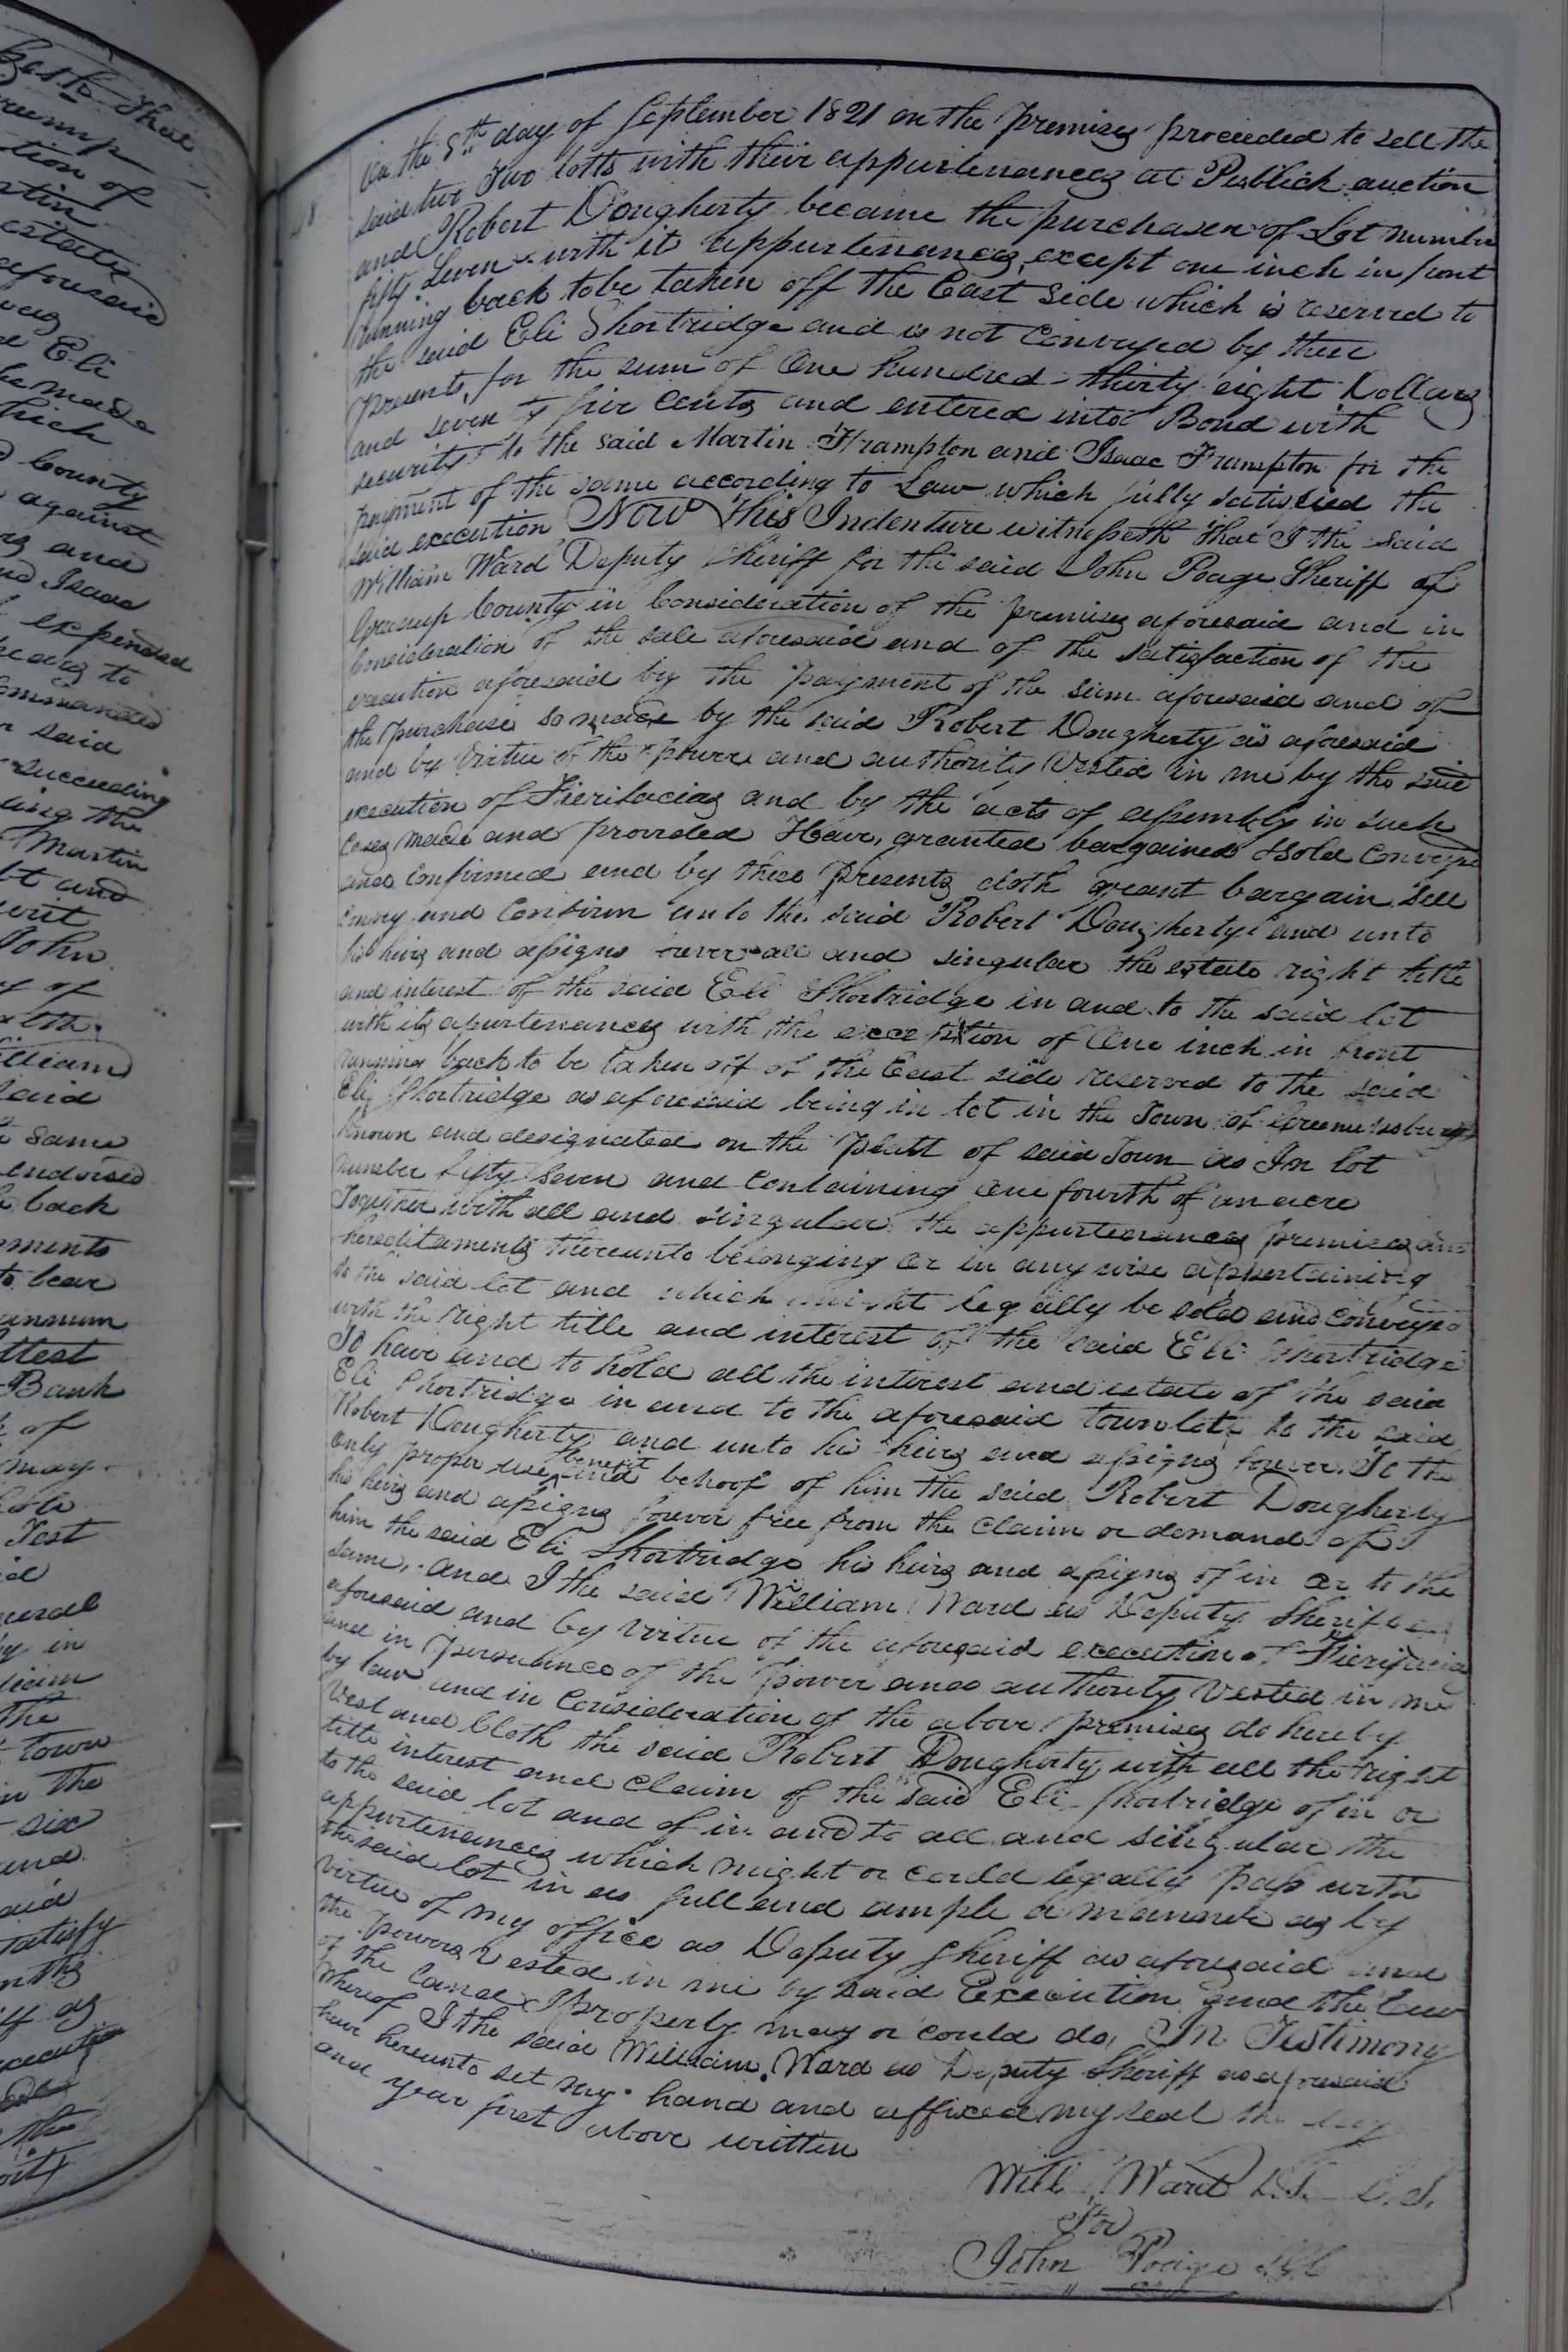 Zes to That
reemp
tion of
rtin
estate
aforesaid
was
e Eli
be made
hich
County
against
rs and
Isaac
expended
ears to
ommanded
n said
succeeding
ling the
Martin
bt and
writ
John
y of
lth
illiam
said
same
endorsed
back
ments
to bear
annum
ttest
Bank
of
may
Test
id
eral
y in
liam
The
town
in the
six
and
aid
satisfy
nths
iff as
the
48
On the 8th day of September 1821 on the premises proceeded to sell the
said two Two lotts with their appurtenances at Publick auction
and Robert Dougherty became the purchaser of Lot number
fifty Seven with it appurtenances, except one inch in front
running back to be taken off the East side which is reserved to
the said Eli Shortridge and is not Conveyed by these
presents, for the sum of One hundred thirty eight Dollars
and seven ty five Cents and entered into Bond with
security to the said Martin Frampton and Isaac Frampton for the
payment of the same according to Law which fully satisfied the
said execution Now This Indenture witnesseth that I the said
William Ward Deputy Sheriff for the said John Poage Sheriff of
Greenup County in Consideration of the premises aforesaid and in
Consideration of the sale aforesaid and of the satisfaction of the
execution aforesaid by the payment of the sum aforesaid and of
the purchase so made by the said Robert Dougherty as aforesaid
and by Virtue of the power and authority Vested in me by the said
execution of Fierifacias and by the acts of assembly in such
Cases made and provided Have, granted bargained & sold Conveyed
and confirmed and by these presents doth grant bargain Sell
Convey and Confirm unto the said Robert Dougherty and unto
his heirs and assigns forever all and singular the estate right title
and interest of the said Eli Shortridge in and to the said lot
with its apurtenances with the exception of One inch in front
running back to be taken off of the East side reserved to the said
Eli Shortridge as aforesaid being in lot in the Town of Greenupsburg
known and designated on the platt of said Town as In lot
number fifty Seven and Containing One fourth of an acre
Together with all and singular the appurtenances premises and
hereditaments thereunto belonging or in any wise appertaining
to the said lot and which might legally be sold and conveyed
with the right title and interest of the said Eli Shortridge
To have and to hold all the interest and estate of the said
Eli Shortridge in and to the aforesaid town lot, to the said
Robert Dougherty and unto his heirs and assigns forever. To the
only proper use, benefit and behoof of him the said Robert Dougherty
his heirs and assigns forever free from the claim or demand of
him the said Eli Shortridge his heirs and assigns of in or to the
same, and I the said William Ward as Deputy Sheriff as
aforesaid and by Virtue of the aforesaid execution of Fierifacias
and in persuance of the power and authority Vested in me
by law and in Consideration of the above premises do hereby
Vest and Cloth the said Robert Dougherty with all the right
title interest and Claim of the said Eli Shortridge of in or
to the said lot and of in and to all and singular the
appurtenances which might or could legally pass with
the said lot in as full and ample a manner as by
virtue of my office as Deputy Sheriff as aforesaid and
the powers Vested in me by said Execution and the law
of the Land I properly may or could do, In Testimony
whereof I the said William Ward as Deputy Sheriff as aforesaid
have hereunto set my hand and affixed my seal the day
and year first above written
Will Ward D.S. L.S.
For
John Poage SGC